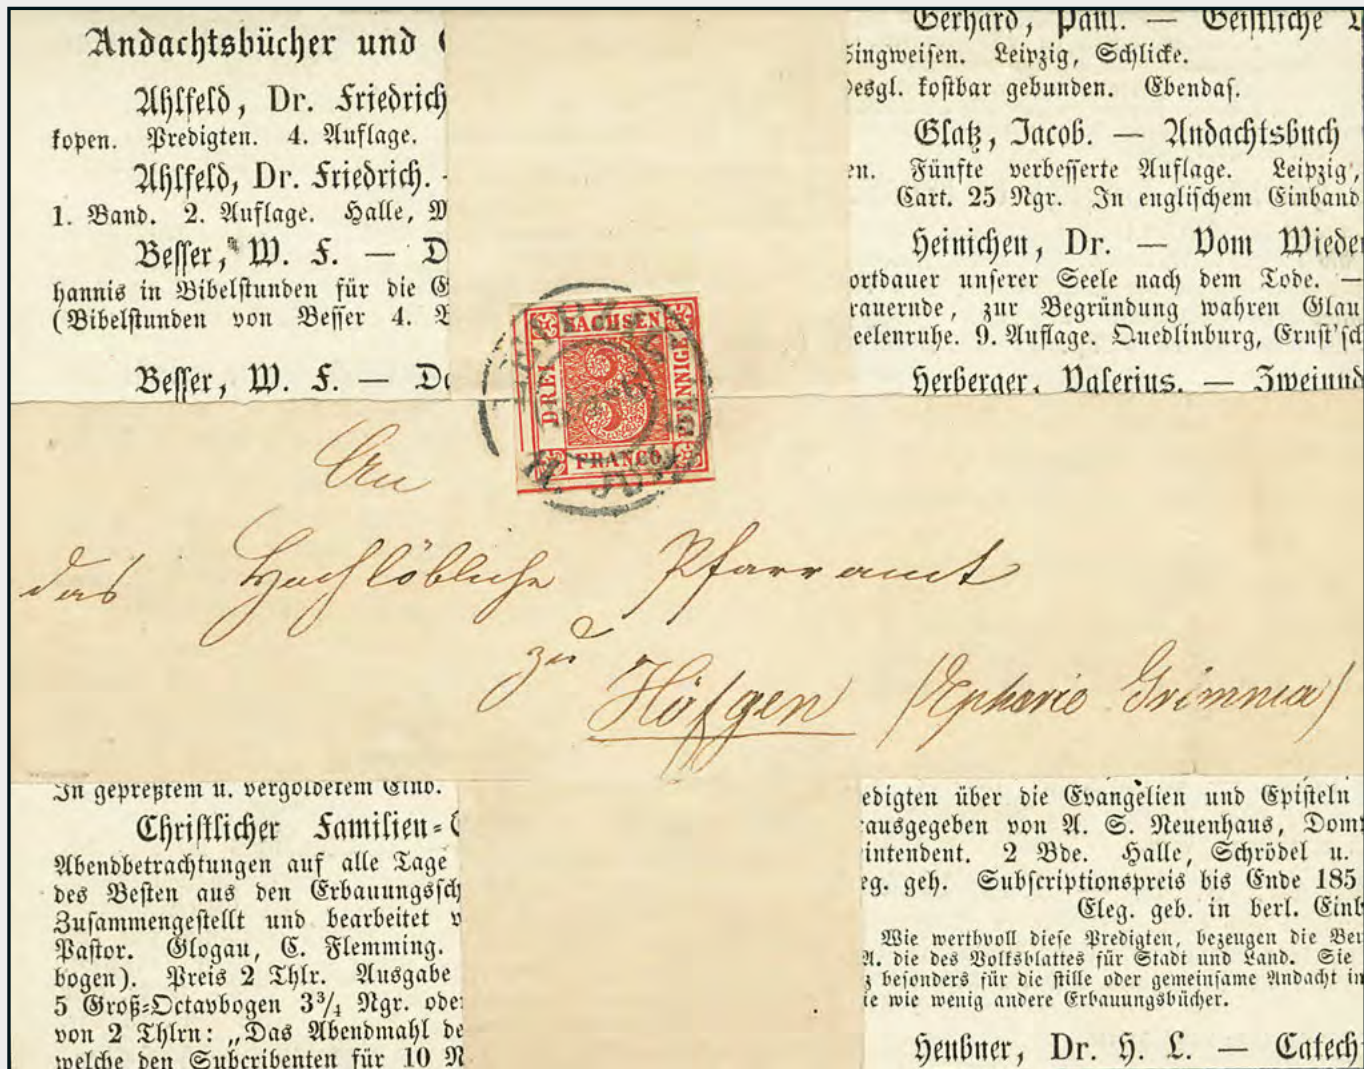 Andachtsbücher und
Ahlfeld, Dr. Friedrich
kopen. Predigten. 4. Auflage.
Ahlfeld, Dr. Friedrich. -
1. Band. 2. Auflage. Halle, M
Besser, W. F. — D
hannis in Bibelstunden für die G
(Bibelstunden von Besser 4. B
Besser, W. F. — Da
Gerhard, Paul. — Geistliche L
Singweisen. Leipzig, Schlicke.
desgl. kostbar gebunden. Ebendas.
Glatz, Jacob. — Andachtsbuch
en. Fünfte verbesserte Auflage. Leipzig,
Cart. 25 Ngr. In englischem Einband
Heinichen, Dr. — Vom Wieder
ortdauer unserer Seele nach dem Tode. —
rauernde, zur Begründung wahren Glau
eelenruhe. 9. Auflage. Quedlinburg, Ernst'sch
Herberger, Valerius. — Zweiund
SACHSEN
DREI
3
PFENNIGE
FRANCO
LEIPZIG
An
das Hochlöbliche Pfarramt
zu
Höfgen (Ephorie Grimma)
In gepreßtem u. vergoldetem Einb.
Christlicher Familien-
Abendbetrachtungen auf alle Tage
des Besten aus den Erbauungssch
Zusammengestellt und bearbeitet v
Pastor. Glogau, C. Flemming.
bogen). Preis 2 Thlr. Ausgabe
5 Groß-Octavbogen 3¾ Ngr. oder
von 2 Thlrn: „Das Abendmahl de
welche den Subcribenten für 10 N
edigten über die Evangelien und Episteln
ausgegeben von A. S. Neuenhaus, Dom
intendent. 2 Bde. Halle, Schrödel u.
eg. geh. Subscriptionspreis bis Ende 185
Eleg. geb. in berl. Einb
Wie werthvoll diese Predigten, bezeugen die Beu
A. die des Volksblattes für Stadt und Land. Sie
z besonders für die stille oder gemeinsame Andacht in
ie wie wenig andere Erbauungsbücher.
Heubner, Dr. H. L. — Catech